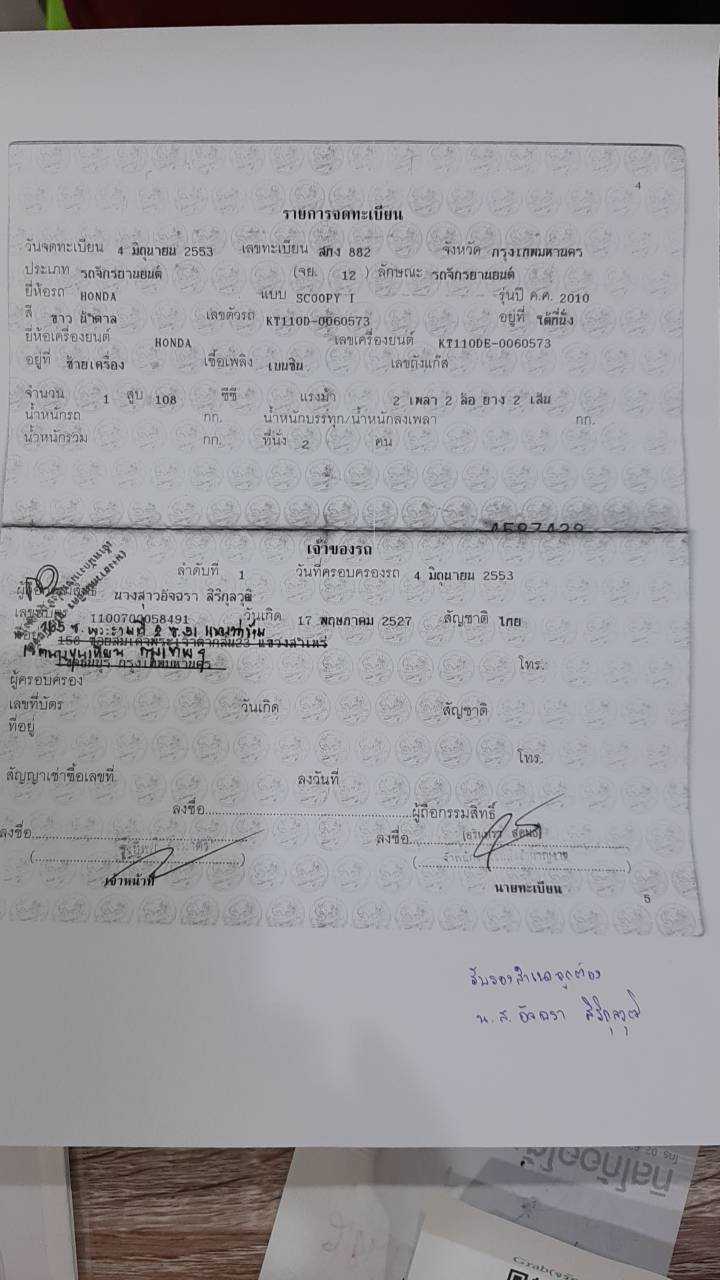 4
รายการจดทะเบียน
วันจดทะเบียน 4 มิถุนายน 2553 เลขทะเบียน สกง 882 จังหวัด กรุงเทพมหานคร
ประเภท รถจักรยานยนต์ (จย. 12 ) ลักษณะ รถจักรยานยนต์
ยี่ห้อรถ HONDA แบบ SCOOPY I รุ่นปี ค.ศ. 2010
สี ขาว น้ำตาล เลขตัวรถ KT110D-0060573 อยู่ที่ ใต้ที่นั่ง
ยี่ห้อเครื่องยนต์ HONDA เลขเครื่องยนต์ KT110DE-0060573
อยู่ที่ ซ้ายเครื่อง เชื้อเพลิง เบนซิน เลขถังแก๊ส
จำนวน 1 สูบ 108 ซีซี แรงม้า 2 เพลา 2 ล้อ ยาง 2 เส้น
น้ำหนักรถ กก. น้ำหนักบรรทุก/น้ำหนักลงเพลา กก.
น้ำหนักรวม กก. ที่นั่ง 2 คน
เจ้าของรถ
ลำดับที่ 1 วันที่ครอบครองรถ 4 มิถุนายน 2553
นางสาวอัจฉรา สิริกุลวุฒิ
1100700058491 วันเกิด 17 พฤษภาคม 2527 สัญชาติ ไทย
ถ.พระรามที่ 2 ซ.
156 ซอยสมเด็จพระเจ้าตากสิน23 แขวงสำเหร่
กรุงเทพฯ
เขตธนบุรี กรุงเทพมหานคร โทร.
ผู้ครอบครอง
เลขที่บัตร วันเกิด สัญชาติ
ที่อยู่
โทร.
สัญญาเช่าซื้อเลขที่ ลงวันที่
ลงชื่อ ผู้ถือกรรมสิทธิ์
ลงชื่อ ลงชื่อ
เจ้าหน้าที่ นายทะเบียน
5
รับรองสำเนาถูกต้อง
น.ส. อัจฉรา สิริกุลวุฒิ
Grab